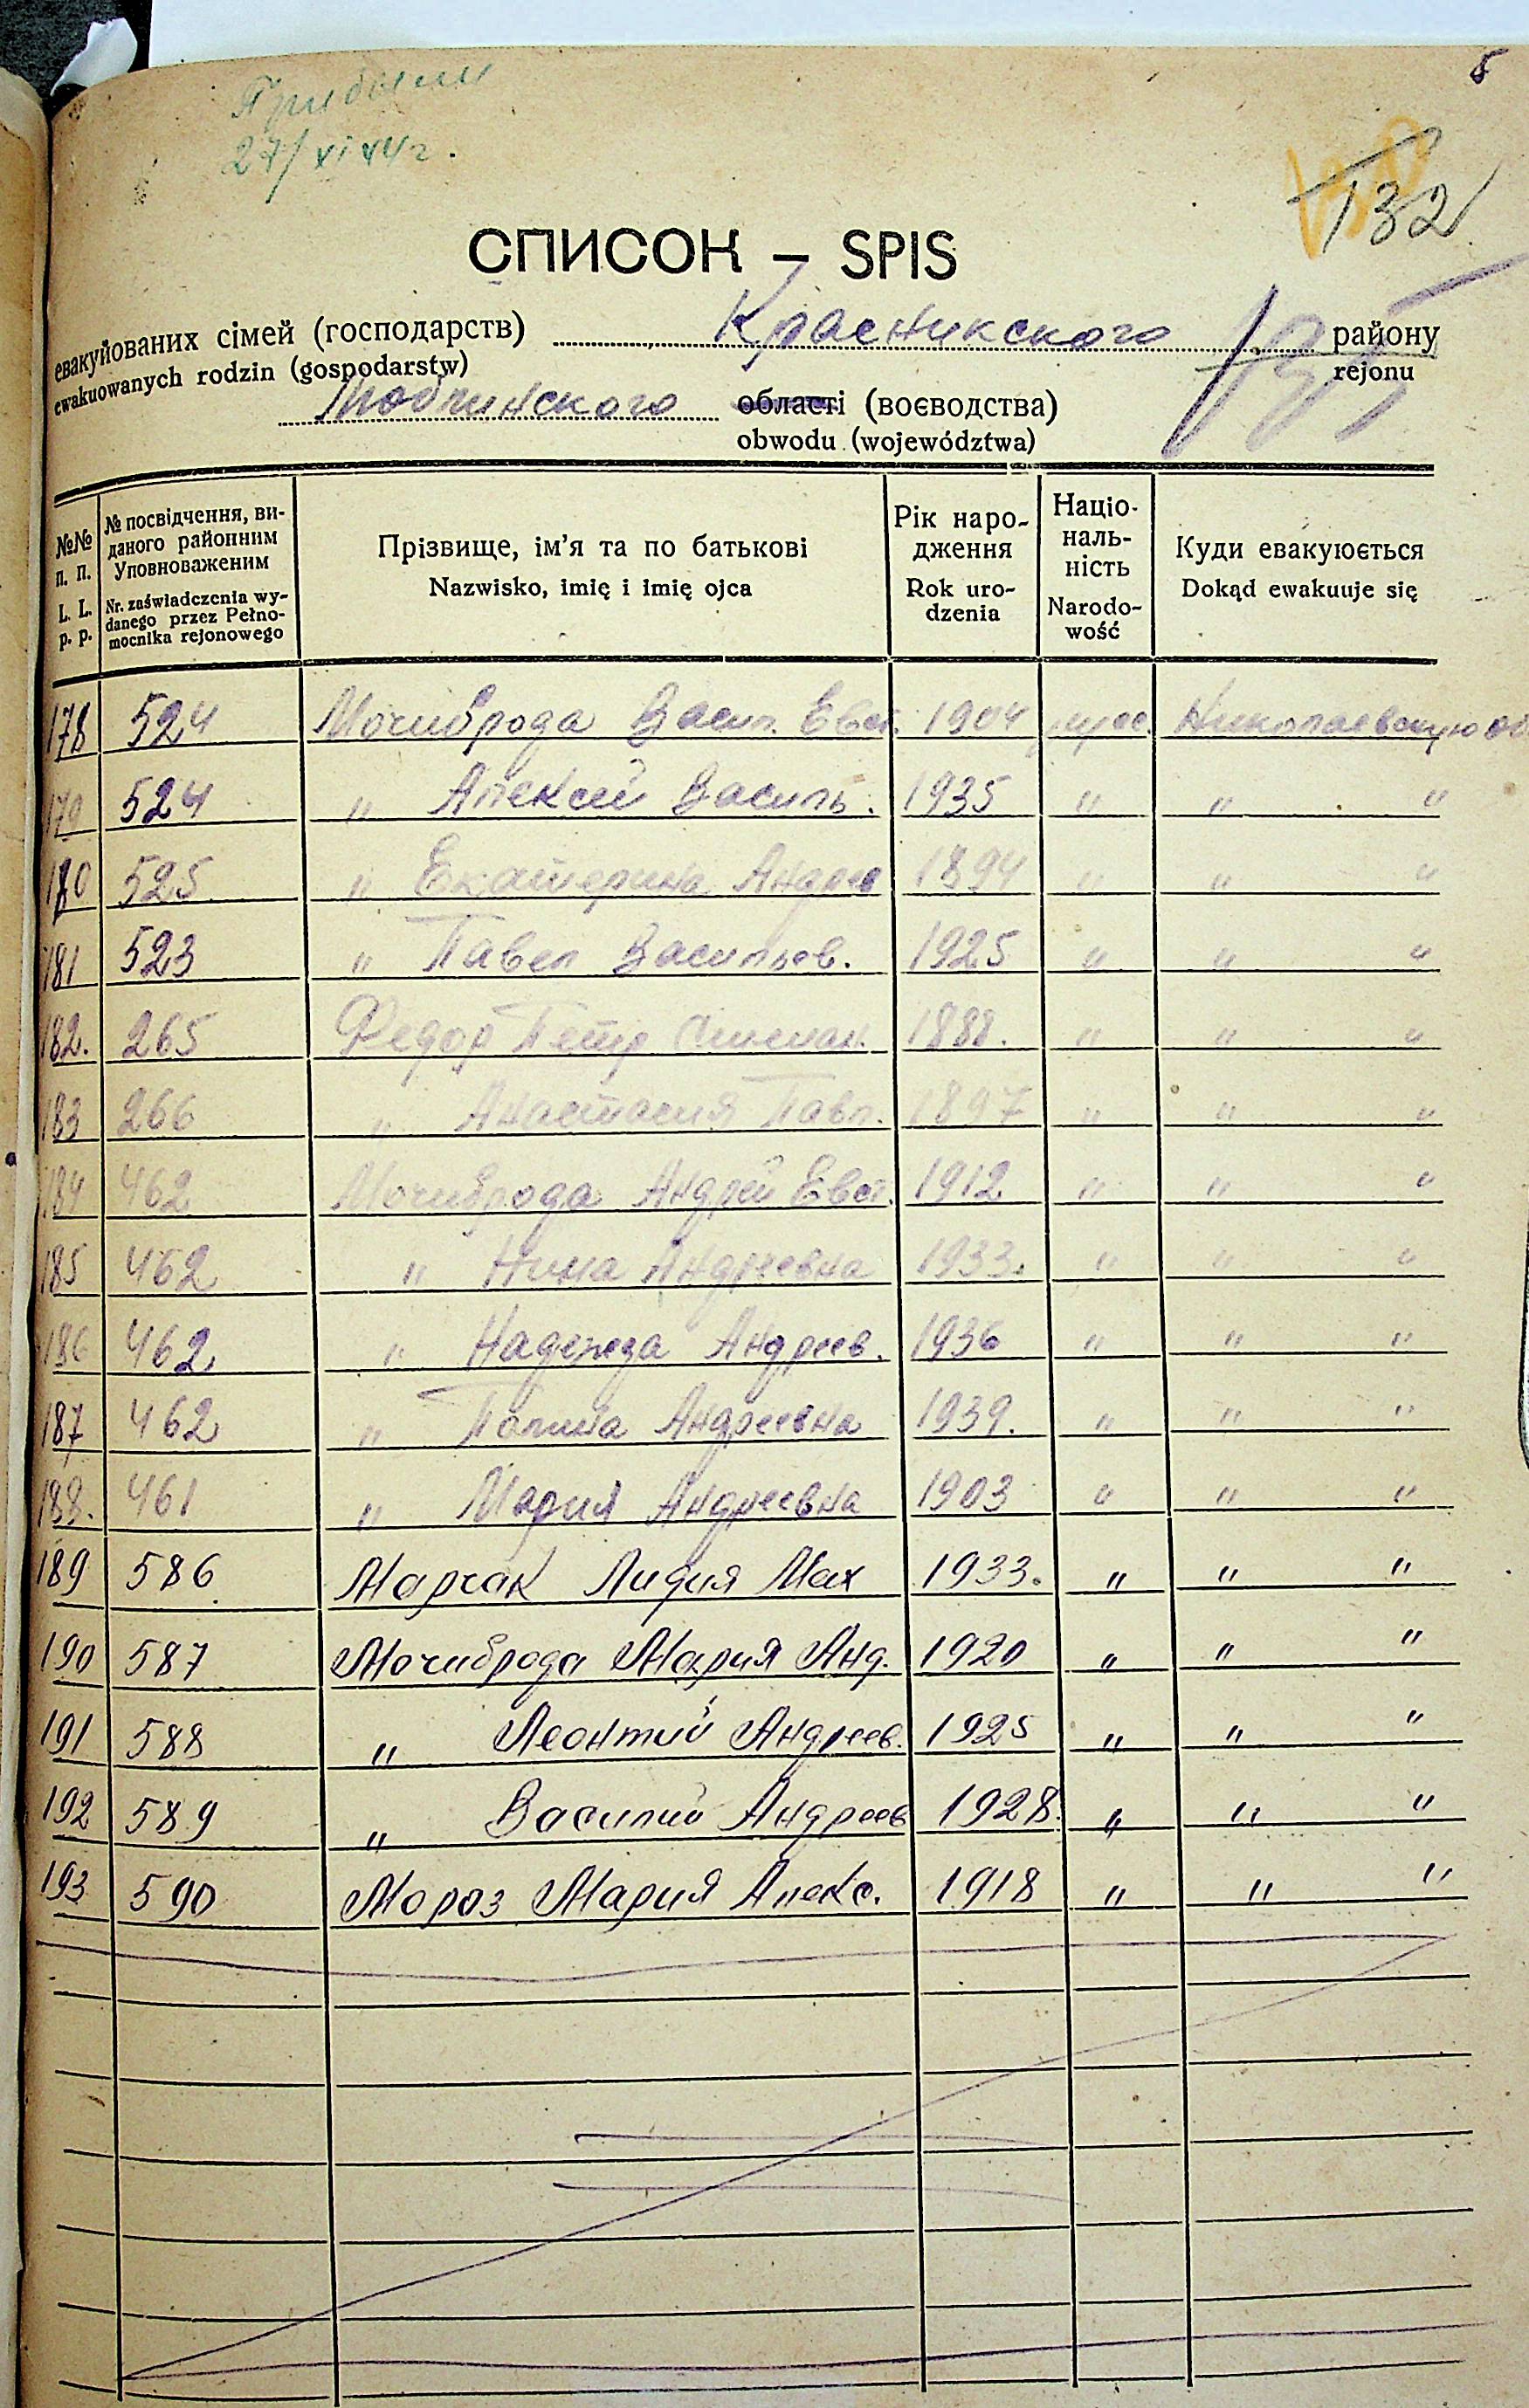 5
Прибыли
27/XI 44 г.
132
СПИСОК – SPIS
евакуйованих сімей (господарств) Красникского району
ewakuowanych rodzin (gospodarstw) rejonu
Люблинского області (воєводства)
obwodu (województwa)
№№ п. п. № посвідчення, ви-даного районним Уповноваженим Прізвище, ім’я та по батькові Рік наро-дження Націо-наль-ність Куди евакуюється
L. L. p. p. Nr. zaświadczenia wy-danego przez Pełno-mocnika rejonowego Nazwisko, imię i imię ojca Rok uro-dzenia Narodo-wość Dokąd ewakuuje się
178 524 Мочиброда Васил. Евст. 1904 русс. Николаевскую об
179 524 " Алексей Василь. 1935 " " "
180 525 " Екатерина Андрее 1894 " " "
181 523 " Павел Васильев. 1925 " " "
182. 265 Федор Петр Степан. 1888. " " "
183 266 " Анастасия Павл. 1897 " " "
184 462 Мочиброда Андрей Евст. 1912 " " "
185 462 " Нина Андреевна 1933. " " "
186 462 " Надежда Андреев. 1936 " " "
187 462 " Полина Андреевна 1939. " " "
188. 461 " Мария Андреевна 1903 " " "
189 586 Марчак Лидия Мах 1933. " " "
190 587 Мочиброда Мария Анд. 1920 " " "
191 588 " Леонтий Андреев. 1925 " " "
192 589 " Василий Андреев 1928. " " "
193 590 Мороз Мария Алекс. 1918 " " "